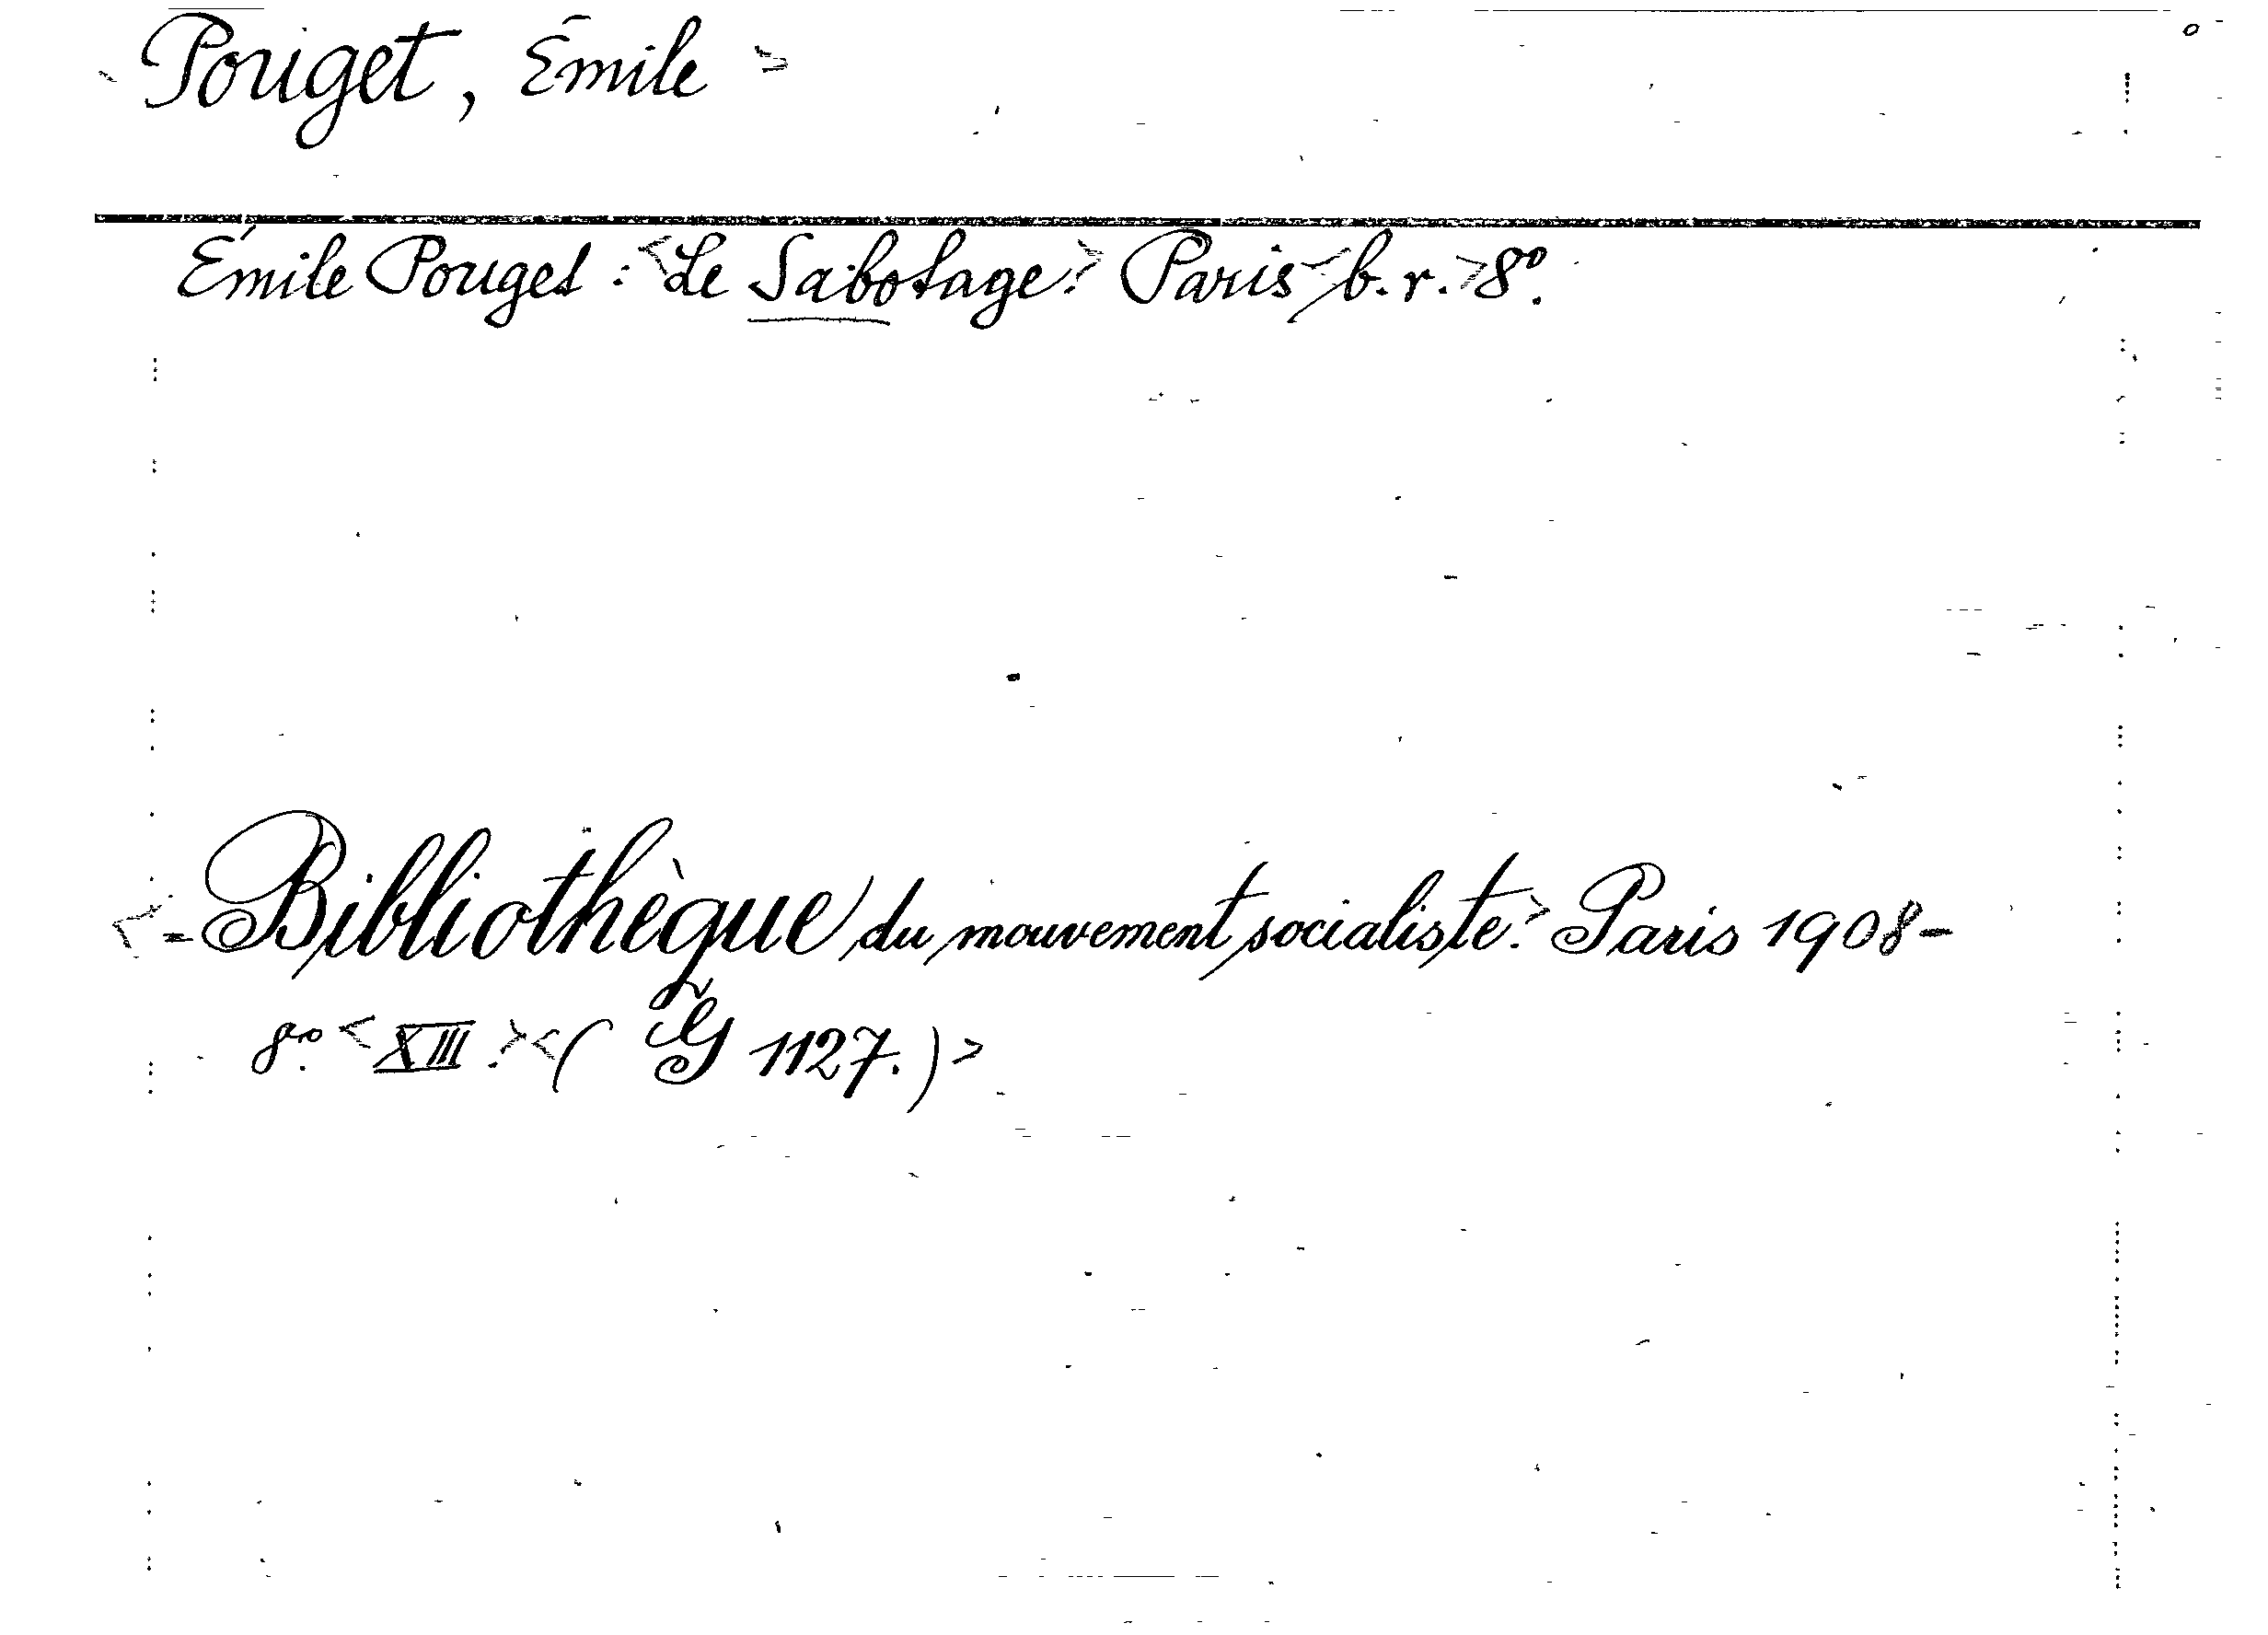 Pouget, Émile >
Émile Pouget : <Le Sabotage.> Paris <b. r.> 8º.
<= Bibliothèque du mouvement socialiste.> Paris 1908-
8º. <XIII.> <( G 1127.)>